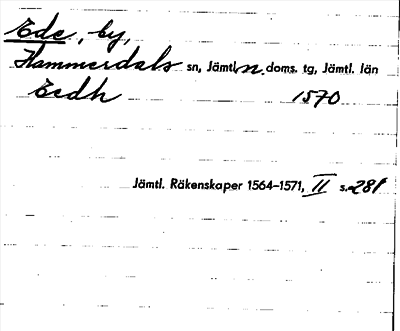 Ede, by,
Hammerdals sn, Jämtl. n. doms. tg, Jämtl. län
Eedh 1570
Jämtl. Räkenskaper 1564-1571, II s. 281